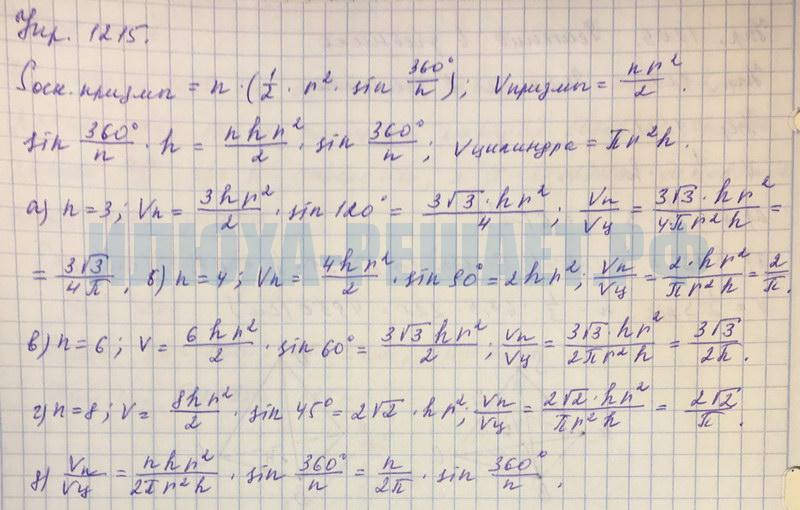 Упр. 1215.
Sосн. призмы = n · (1/2 · r² · sin 360°/n); Vпризмы = nr²/2 ·
sin 360°/n · h = nhr²/2 · sin 360°/n; Vцилиндра = πr²h.
а) n=3; Vп = 3hr²/2 · sin 120° = 3√3·hr²/4; Vп/Vц = 3√3·hr²/4πr²h =
= 3√3/4π, б) n=4; Vп = 4hr²/2 · sin 90° = 2hr²; Vп/Vц = 2·hr²/πr²h = 2/π.
в) n=6; V = 6hr²/2 · sin 60° = 3√3hr²/2; Vп/Vц = 3√3·hr²/2πr²h = 3√3/2π.
г) n=8; V = 8hr²/2 · sin 45° = 2√2·hr²; Vп/Vц = 2√2·hr²/πr²h = 2√2/π.
д) Vп/Vц = nhr²/2πr²h · sin 360°/n = n/2π · sin 360°/n.
ИЛЮХА-РЕШАЕТ.РФ